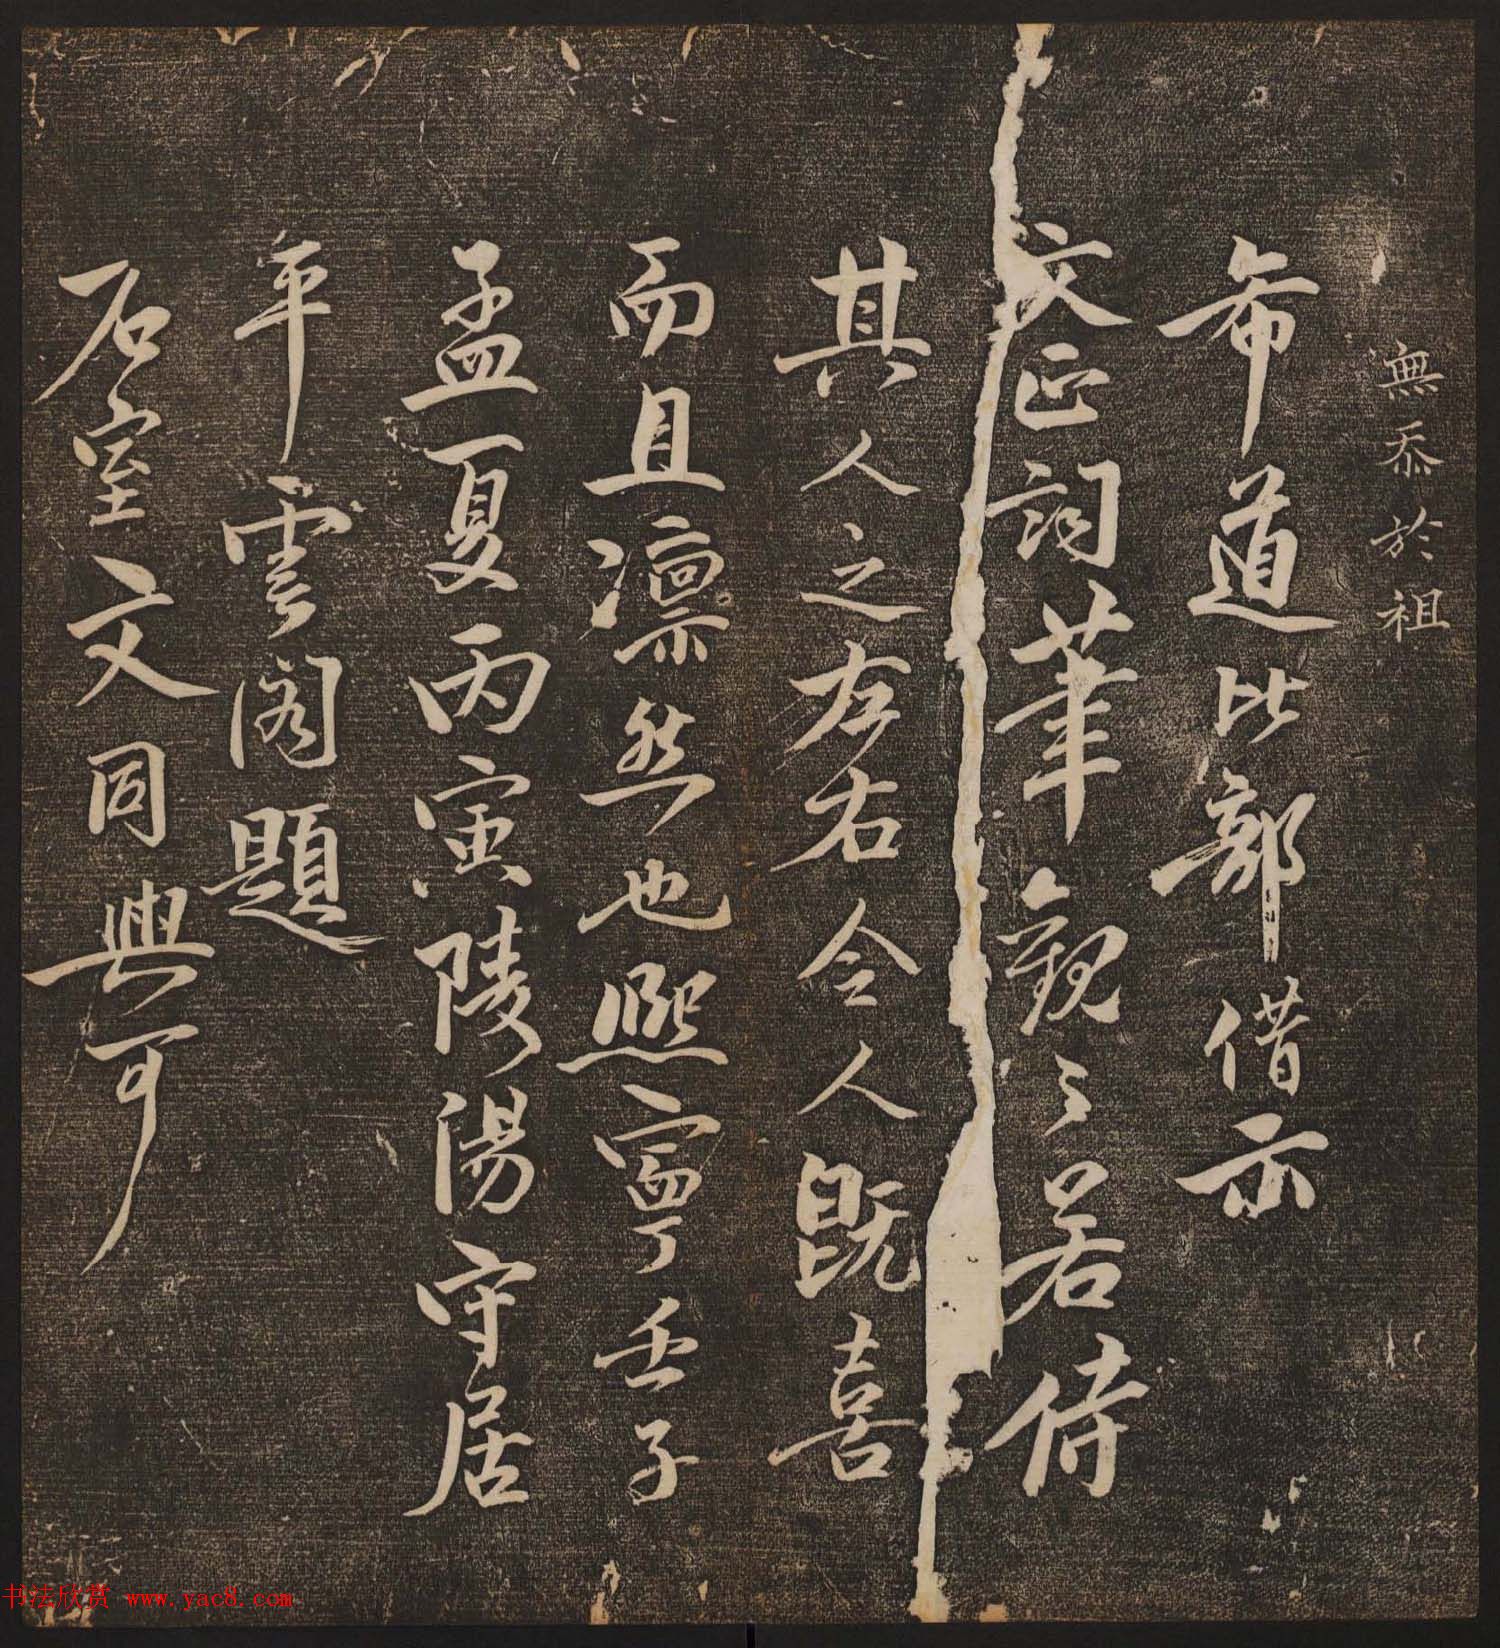 無忝於祖
希道比部借示
文正詞筆觀之若侍
其人之左右令人既喜
而且凛然也熙寧壬子
孟夏丙寅陵陽守居
平雲閣題
石室文同與可
书法欣赏 www.yac8.com